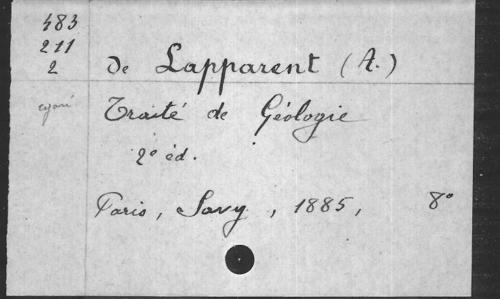 483
211
2
de Lapparent (A.)
égaré
Traité de Géologie
2e éd.
Paris, Savy, 1885, 8°